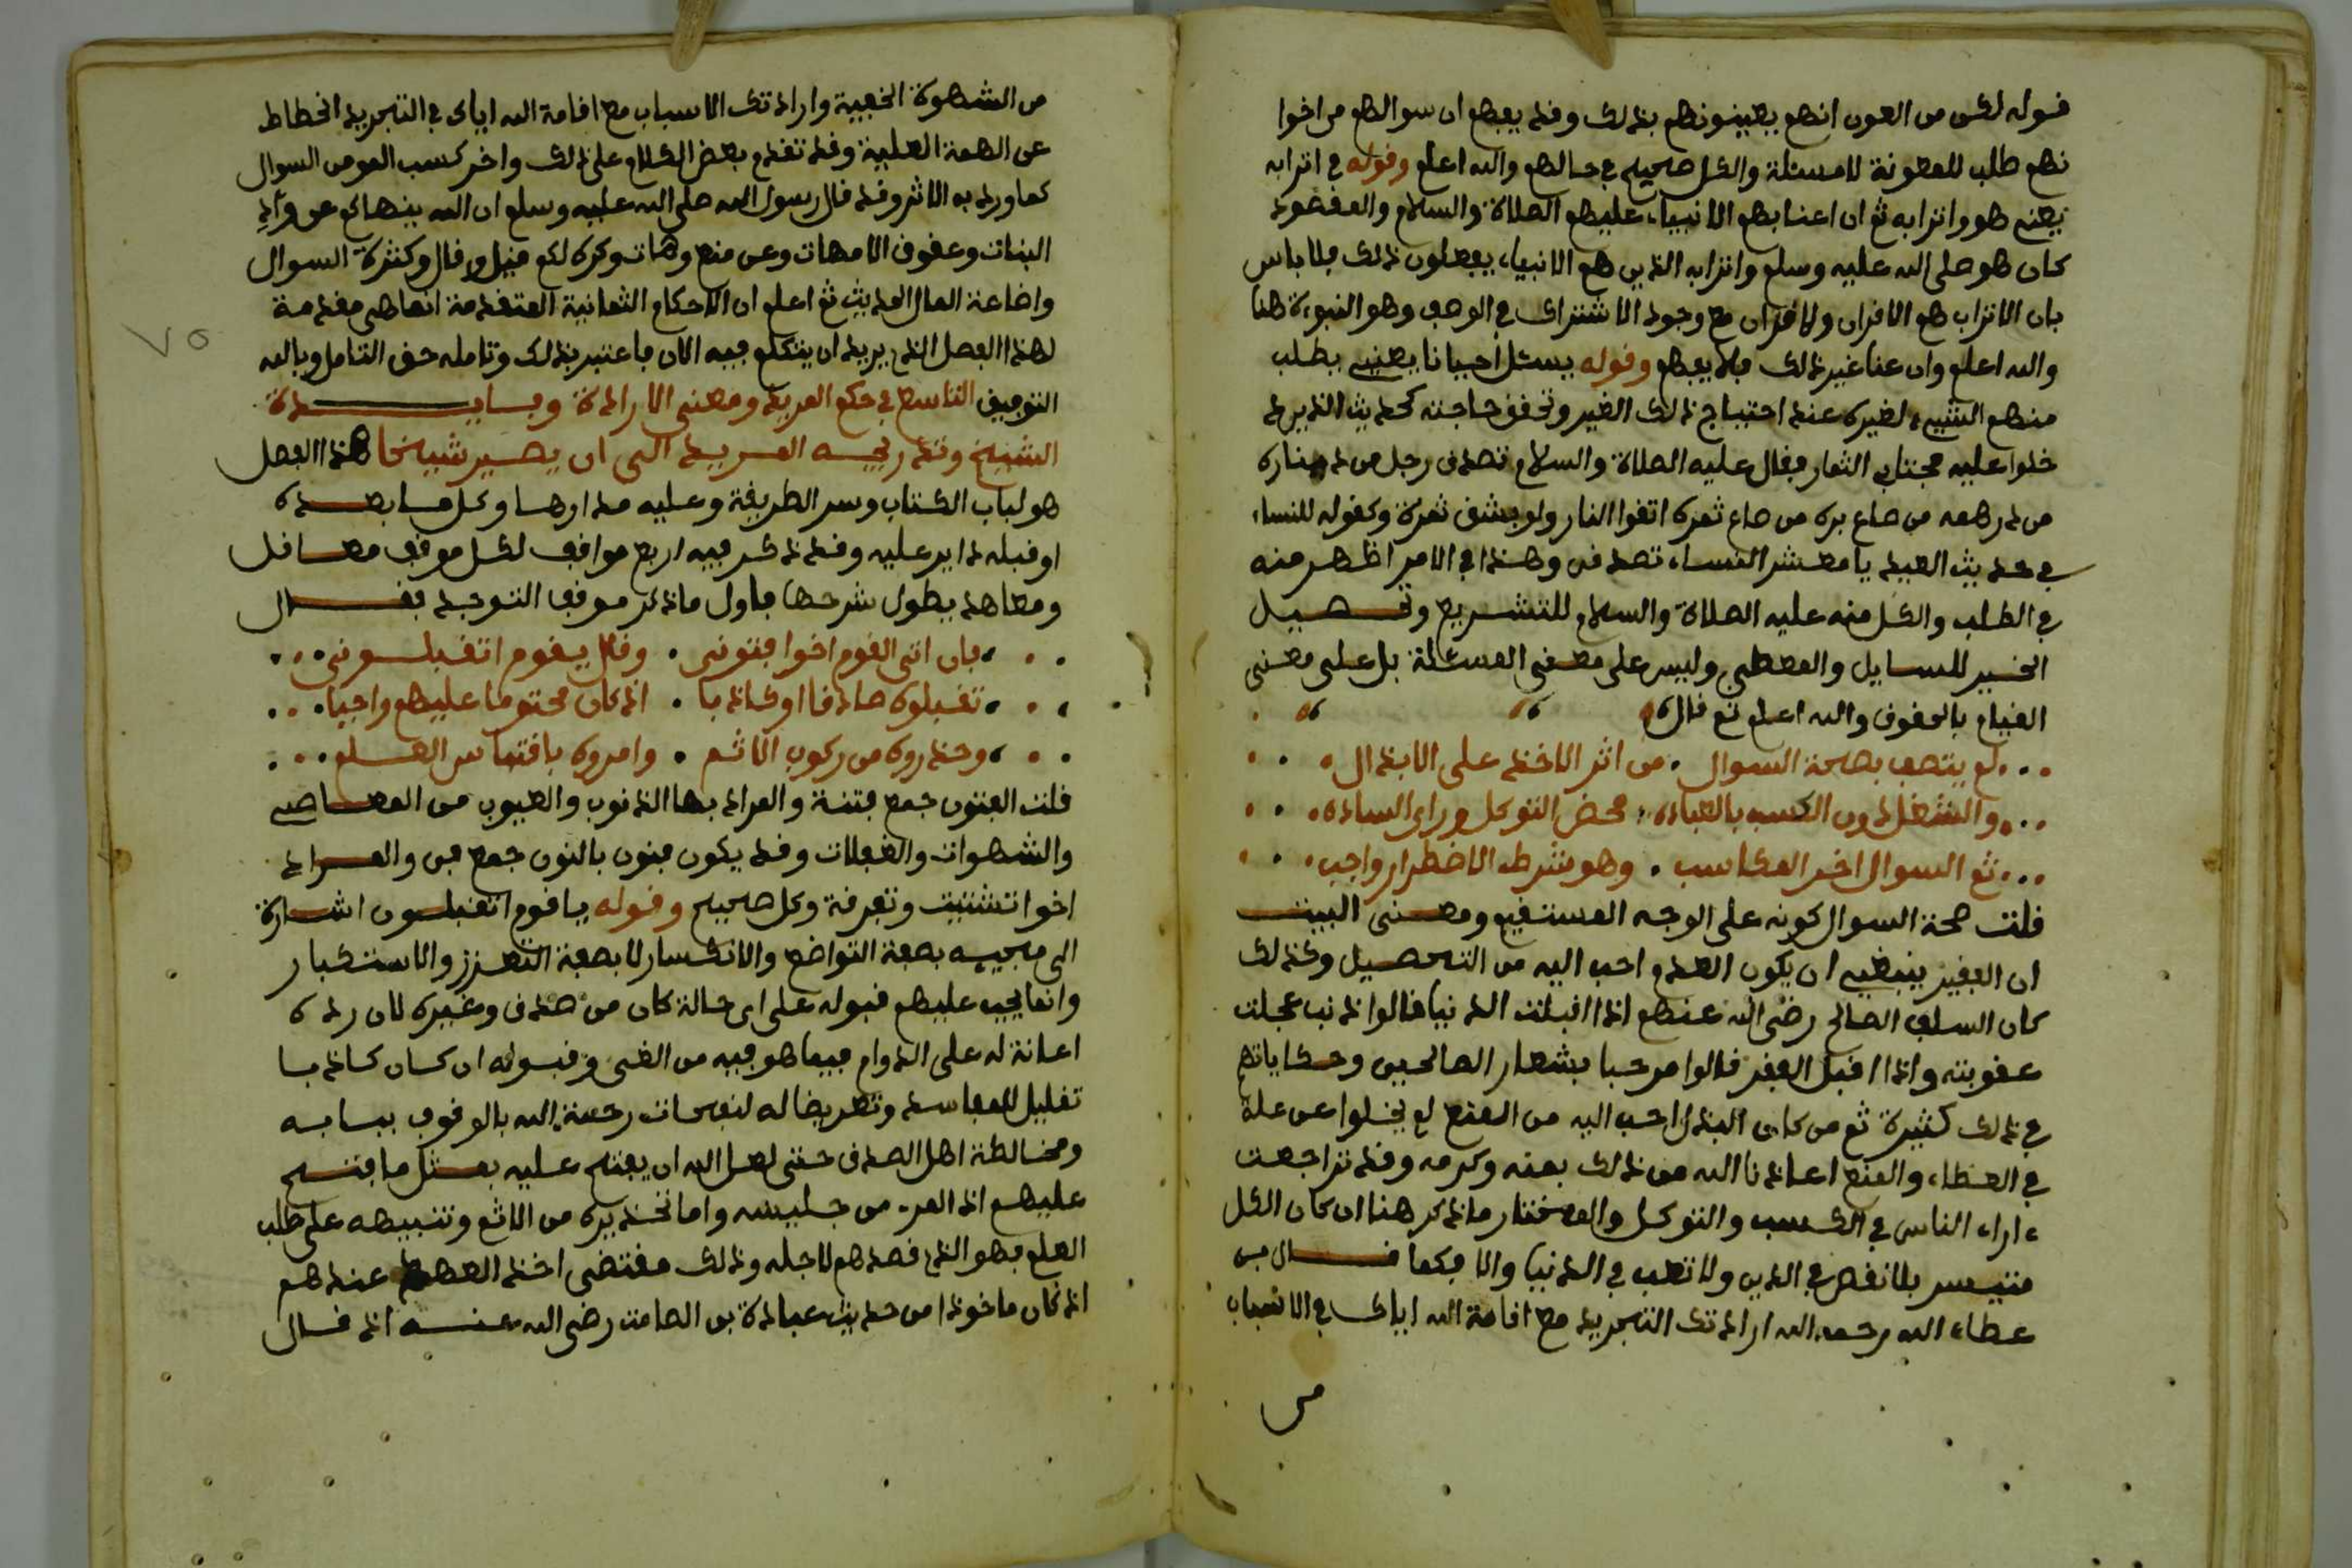 قوله لكن من العون انهم يعينونهم بذلك وقد يفهم ان سوالهم من اخوا
نهم طلب للمعونة لا مسئلة والكل صحيح في حالهم والله اعلم وقوله في اترابه
يعني هو واترابه ثم ان اعنا بهم الانبياء عليهم الصلاة والسلام والمقصود
كان هو صلى الله عليه وسلم واترابه الذين هم الانبياء يفعلون ذلك فلا باس
بان الاتراب هم الاقران ولا اقران مع وجود الاشتراك في الوصف وهو النبوءة هنا
والله اعلم وان عنا غير ذلك فلا يفهم وقوله يسئل احيانا يعني يطلب
منهم الشيء لغيره عند احتياج ذلك الغير وتحقق حاجته كحديث الذين
دخلوا عليه مجتابي النمار فقال عليه الصلاة والسلام تصدق رجل من ديناره
من درهمه من صاع بره من صاع تمره اتقوا النار ولو بشق تمرة وكقوله للنساء
في حديث العيد يا معشر النساء تصدقن وهذا في الامر اظهر منه
في الطلب والكل منه عليه الصلاة والسلام للتشريع وتحصيل
الخير للسايل والمعطي وليس على معنى المسئلة بل على معنى
القيام بالحقوق والله اعلم ثم قال
لم يتصف بصحة السوال . من اثر الاخذ على الابذال
والشغل دون الكسب بالعباده . محض التوكل وراى الساده
ثم السوال اخر المكاسب . وهو بشرط الاضطرار واجب
قلت صحة السوال كونه على الوجه المستقيم ومعنى البيت
ان الفقير ينبغي ان يكون العدم احب اليه من التحصيل وكذلك
كان السلف الصالح رضي الله عنهم اذا اقبلت الدنيا قالوا ذنب عجلت
عقوبته واذا اقبل الفقر قالوا مرحبا بشعار الصالحين وحكاياتهم
في ذلك كثيرة ثم من كان البذل احب اليه من المنع لم يخلوا عن علة
في العطاء والمنع اعاذنا الله من ذلك بمنه وكرمه وقد تراجعت
ءاراء الناس في الكسب والتوكل والمختار ما ذكر هنا ان كان الكل
متيسر بلا نقص في الدين ولا تعب في الدنيا والا فكما قال بن
عطاء الله رحمه الله ارادتك التجريد مع اقامة الله اياك في الاسباب
من
من الشهوة الخفية وارادتك الاسباب مع اقامة الله اياك في التجريد انحطاط
عن الهمة العلية وقد تقدم بعض الكلام على ذلك واخر كسب المومن السوال
كما ورد به الاثر وقد قال رسول الله صلى الله عليه وسلم ان الله ينهاكم عن وأد
البنات وعقوق الامهات وعن منع وهات وكره لكم قيل وقال وكثرة السوال
واضاعة المال الحديث ثم اعلم ان الاحكام الثمانية المتقدمة انما هي مقدمة
لهذا الفصل الذي يريد ان يتكلم فيه الان فاعتبر بذلك وتامله حق التامل وبالله
٧٥
التوفيق التاسع في حكم المريد ومعنى الارادة وفايدة
الشيخ وتدريجه المريد الى ان يصير شيخا هذا الفصل
هو لباب الكتاب وسر الطريقة وعليه مدارها وكل ما بعده
او قبله داير عليه وقد ذكر فيه اربع مواقف لكل موقف معاقل
ومعاهد يطول شرحها فاول ما ذكر موقف التوجه فقال
فان اتى القوم اخوا فتون . وقال يقوم اتقبلوني
تقبلوه صادقا او كاذبا . اذ كان محتوما عليهم واجبا
وحذروه من ركوب الاثم . وامروه باقتباس العلم
قلت الفتون جمع فتنة والمراد بها الذنوب والعيوب من المعاصي
والشهوات والغفلات وقد يكون فنون بالنون جمع فن والمراد
اخوا تشتيت وتفرقة وكل صحيح وقوله يا قوم اتقبلون اشارة
الى مجيه بصفة التواضع والانكسار لا بصفة التعزز والاستكبار
وانما يجب عليهم قبوله على اي حالة كان من صدق وغيره لان رده
اعانة له على الدوام فيما هو فيه من الغي وقبوله ان كان كاذبا
تقليل للمفاسد وتعريضا له لنفحات رحمة الله بالوقوف ببابه
ومخالطة اهل الصدق حتى لعل الله ان يفتح عليه بمثل ما فتح
عليهم اذ المرء من جليسه واما تحذيره من الاثم وتنبيهه على طلب
العلم فهو الذي قصدهم لاجله وذلك مقتضى اخذ العهد عندهم
اذ كان ماخوذا من حديث عبادة بن الصامت رضي الله عنه اذ قال